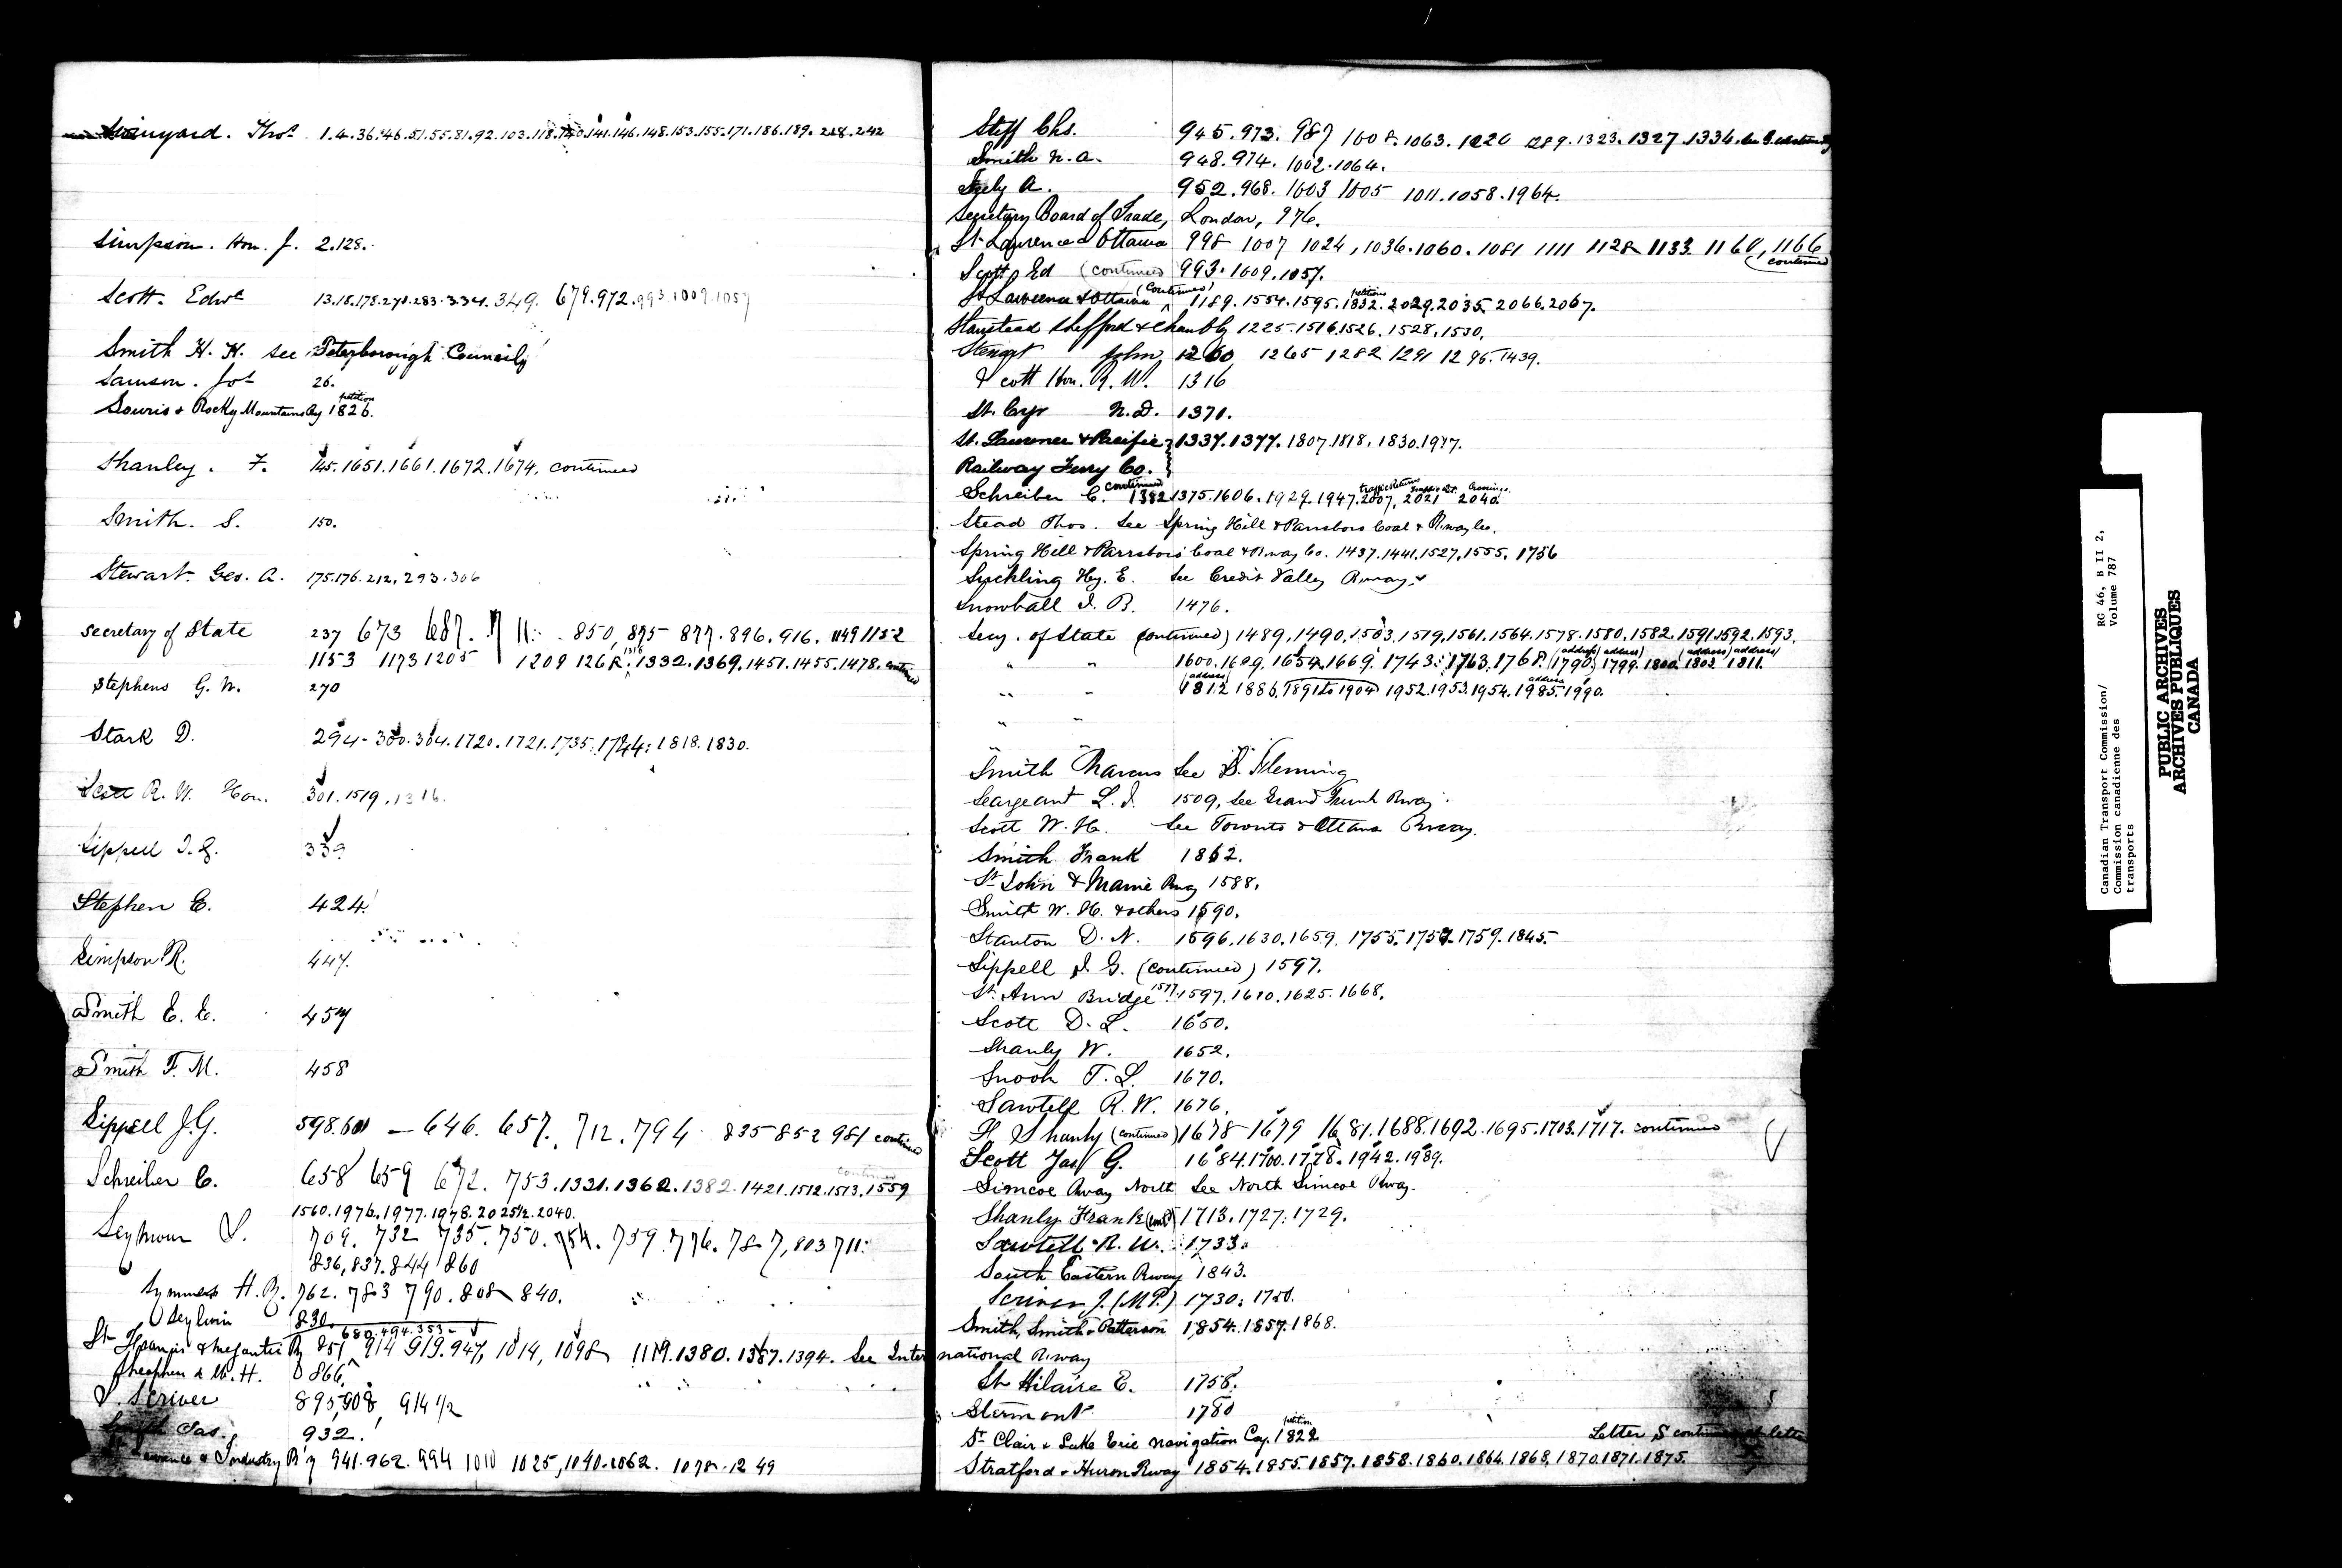 Swinyard. Thos 1.4.36.46.51.55.81.92.103.118.130.141.146.148.153.155.171.186.189.228.242
Simpson. Hon. J. 2.128.
Scott. Edwd 13.18.178.270.283.334.349. 679.972.993.1009.1057
Smith H. H. see Peterborough Councils
Samson. Jos 26.
Souris & Rocky Mountain Ry petition 1826.
Shanley. F. 145.1651.1661.1672.1674. continued
Smith. S. 150.
Stewart. Geo. A. 175.176.212.293.306
Secretary of State 237 673 687. 711. 850, 875 877. 896. 916. 1149 1152
1153 1173 1205 1209 1268. 1316 1332. 1369. 1451. 1455. 1478. continued
Stephens G. W. 270
Stark D. 294-300.304.1720.1721.1735.1744.1818.1830.
Scott R. W. Hon. 301.1519.1316.
Sippell J. G. 339
Stephen C. 424.
Simpson R. 447.
Smith E. C. 457
Smith F. M. 458
Sippell J. G. 598.601 – 646. 657. 712. 794 835 852 981 continued
Schreiber C. 658 659 672. 753. 1331. 1362. 1382. 1421. 1512. 1513. 1559 continued
1560.1976.1977.1978.2025½.2040.
Seymour S. 709. 732 735. 750. 754. 759. 776. 787, 803 711.
836, 837. 844 860
Symmes H. B. 762. 783 790. 808 840.
830.
680.494.353
St Francis & Megantic Ry 851 914 919. 947, 1014, 1098 1119. 1380. 1387. 1394. See International Rway
Stephen W. H. 866.
J. Scriver 895, 908, 914½
Smith Jas. 932.
& Industry R'y 941.962. 994 1010 1025, 1040.1062. 1078. 1249
Stiff Chs. 945.973. 987 1008.1063. 1220 1289.1323. 1327. 1336.
Smith N. A. 948.974. 1002.1064.
Seely A. 952.968. 1003 1005 1011.1058.1964.
Secretary Board of Trade, London, 976.
St. Lawrence & Ottawa 998 1007 1024, 1036.1060. 1081 1111 1128 1133. 1160, 1166 (continued
Scott Ed (continued 993. 1009. 1057.
St Lawrence & Ottawa (continued) 1189.1554.1595. petition 1832. 2029.2035 2066.2067.
Stanstead Shefford & Chambly 1225.1516.1526. 1528.1530.
Stewart John 1260 1265 1282 1291 1296. 1439.
Scott Hon. R. W. 1316
St. Cyr N. D. 1371.
St. Lawrence & Pacific } 1337. 1377. 1807. 1818. 1830. 1977.
Railway Ferry Co. }
Schreiber C. continued 1382 1375.1606. 1927. 1947. traffic returns 2007. 2021 Crossings. 2040.
Stead Thos. See Spring Hill & Parrsboro Coal & Rway Co.
Spring Hill & Parrsboro' Coal & Rway Co. 1437.1441.1527.1555. 1756
Suckling Hy. E. See Credit Valley Rway.
Snowball J. B. 1476.
Secy. of State (continued) 1489.1490.1503.1519.1561.1564.1578.1580.1582.1591.1592.1593.
" " 1600.1609.1654.1669. 1743. 1763. 1768. (address) 1790. (address) 1799. 1800. (address) 1802 (address) 1811.
" " (address) 1812 1886. 1891 to 1904 1952.1953.1954. address 1985. 1990.
" "
"
Smith Marcus See S. Fleming
Seargeant L. J. 1509, See Grand Trunk Rway.
Scott W. H. See Toronto & Ottawa Rway.
Smith Frank 1862.
St John & Maine Rwy 1588.
Smith W. H. & others 1590.
Stanton D. N. 1596.1630.1659. 1755.1757.1759.1845.
Sippell J. G. (continued) 1597.
St. Ann Bridge 1577. 1597.1610.1625.1668.
Scott D. L. 1650.
Shanly W. 1652.
Snook T. L. 1670.
Sawtell R. W. 1676.
F. Shanly (continued) 1678 1679 1681. 1688. 1692. 1695. 1703. 1717. continued
Scott Jas G. 1684.1700.1778. 1942. 1989.
Simcoe Rway North See North Simcoe Rway.
Shanly Frank (contd) 1713. 1727. 1729.
Sawtell R. W. 1733.
South Eastern Rway 1843.
Scriver J. (M.P.) 1730. 1750.
Smith, Smith & Patterson 1854. 1857. 1868.
St. Hilaire E. 1758.
Stermont 1780
St Clair & Lake Erie Navigation Coy. petition 1822
Letter S continued
Stratford & Huron Rway 1854.1855.1857.1858.1860.1864.1868.1870.1871.1875.
Canadian Transport Commission/ RG 46, B II 2,
Commission canadienne des Volume 787
transports
PUBLIC ARCHIVES
ARCHIVES PUBLIQUES
CANADA